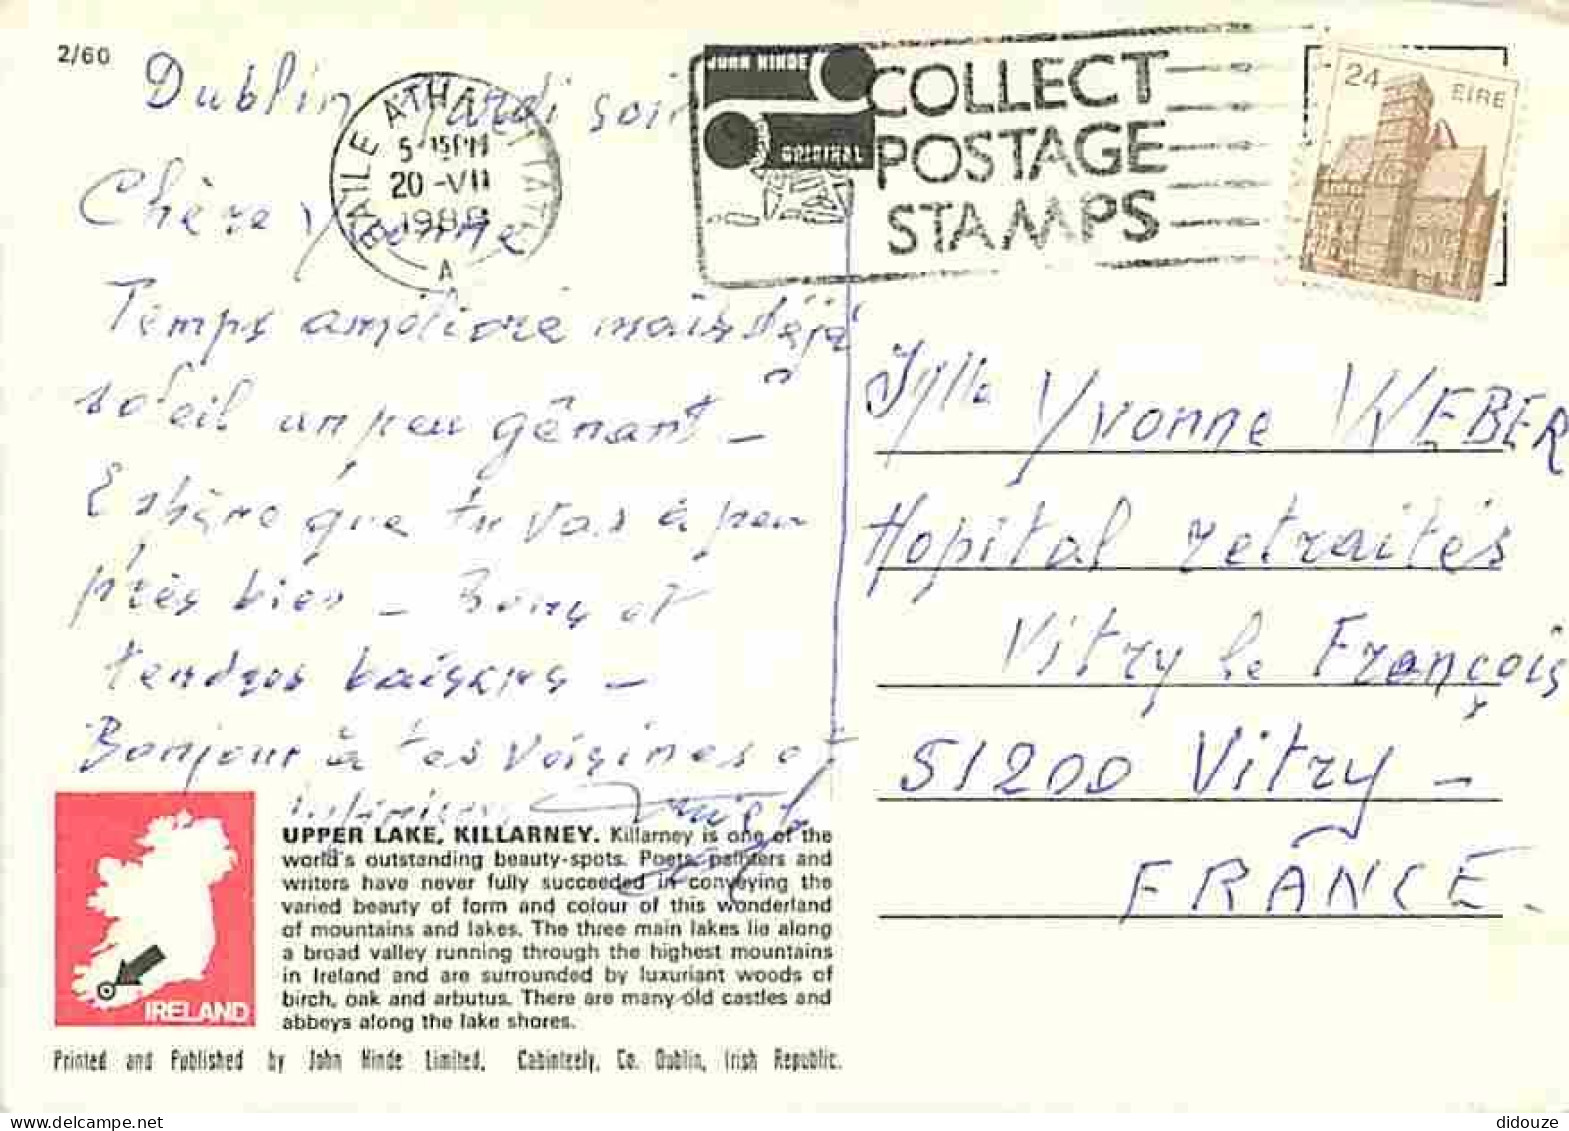 2/60
Dublin mardi soir
BAILE ÁTHA
5-15PM
20-VII
A
JOHN HINDE
ORIGINAL
COLLECT
POSTAGE
STAMPS
24 EIRE
Chère Yvonne
Temps améliore mais déjà
soleil un peu gênant -
Espère que tu vas à peu
près bien - Bons et
tendres baisers -
Bonjour à tes voisines et
Yvonne WEBER
Hopital retraités
Vitry le François
51200 Vitry -
FRANCE.
IRELAND
UPPER LAKE, KILLARNEY. Killarney is one of the
world's outstanding beauty-spots. Poets, painters and
writers have never fully succeeded in conveying the
varied beauty of form and colour of this wonderland
of mountains and lakes. The three main lakes lie along
a broad valley running through the highest mountains
in Ireland and are surrounded by luxuriant woods of
birch, oak and arbutus. There are many old castles and
abbeys along the lake shores.
Printed and Published by John Hinde Limited, Cabinteely, Co. Dublin, Irish Republic.
www.delcampe.net
didouze